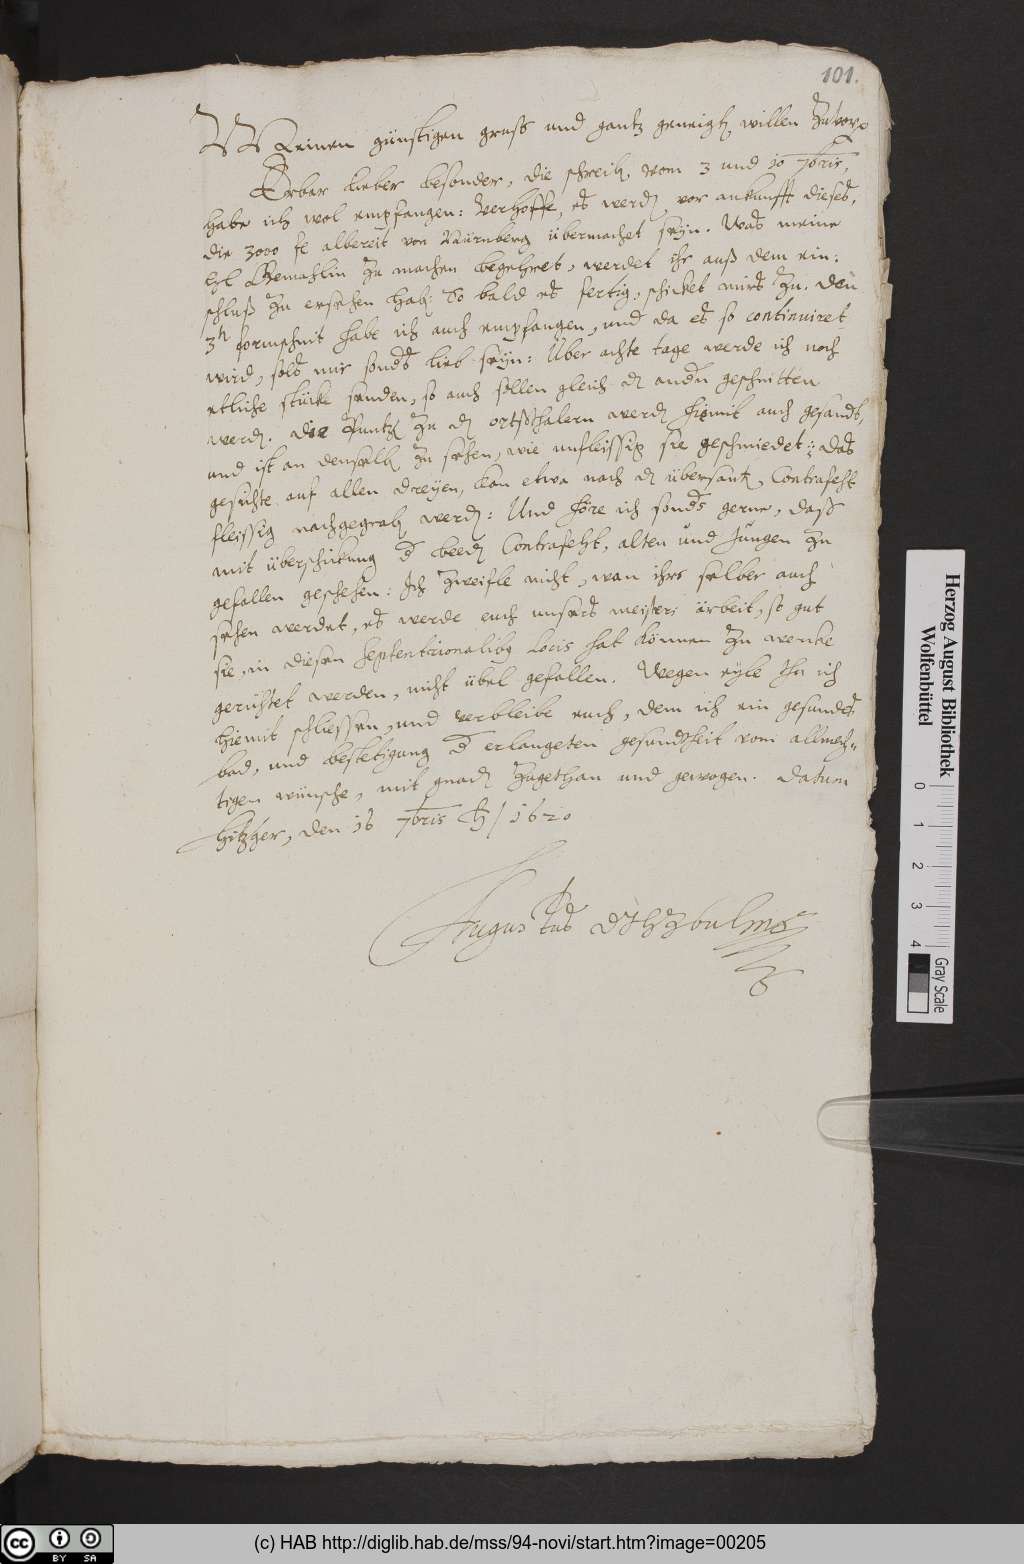 101.
Meinen günstigen gruß und gantz geneigtē willen Zuvorn
Erbar lieber besonder, die schreibē vom 3 und 10 7bris,
habe ich wol empfangen: Verhoffe, es werdē vor ankunfft dieses,
die 3000 fl albereit von Nürnberg übermachet seyn. Was meine
hl Gemahlin zu machen begehret, werdet ihr auß dem ein:
schluß zu ersehen habē. So bald es fertig, schicket mirs zu. Den
3n formschnit habe ich auch empfangen, und da es so continuiret
wird, sols mir sonders lieb seyn: Über achte tage werde ich noch
etliche stücke senden, so auch sollen gleich dē andern geschnitten
werdē. Die Puntzē zu dē ortßthalern werdē hiemit auch gesandt,
und ist an denselbē zu sehen, wie unfleissig sie geschmiedet: das
gesichte auf allen dreyen, kan etwa nach dē übersantē Contrafeht
fleissig nachgegrabē werdē: Und höre ich sonders gerne, daß
mit überschickung d beedē Contrafeht, alten und Jungen zu
gefallen geschehen: Ich zweifle nicht, wan ihrs selber auch
sehen werdet, es werde euch unsers meisters arbeit, so gut
sie, in diesen septentrionalibq locis hat können zu wercke
gerichtet werden, nicht übel gefallen. Wegen eyle thu ich
hiemit schliessen, und verbleibe euch, dem ich ein gesundes
bad, und bestetigung d erlangeten gesundtheit vom allmech=
tigen wünsche, mit gnadē zugethan und gewogen. Datum
Hitzker, den 16 7bris 1620
Augustus DJHZBuLmp
Herzog August Bibliothek
Wolfenbüttel
0 1 2 3 4
Gray Scale
cc BY SA
(c) HAB http://diglib.hab.de/mss/94-novi/start.htm?image=00205